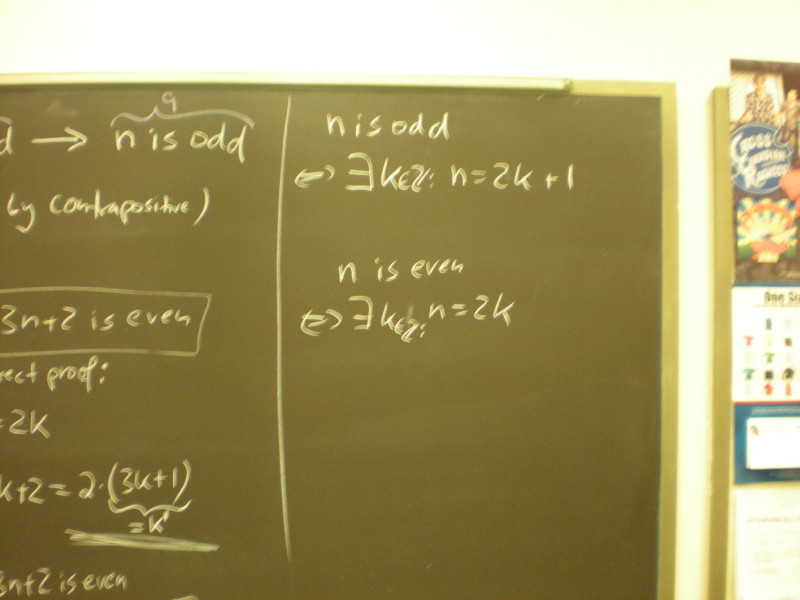 q
d → n is odd
by contrapositive)
3n+2 is even
rect proof:
= 2K
k+2 = 2·(3k+1)
= k'
3n+2 is even
n is odd
⇔ ∃k∈ℤ: n = 2k+1
n is even
⇔ ∃k∈ℤ: n = 2k
CROSS
CANADIAN